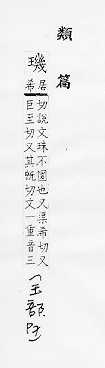 類篇
璣
居希切說文珠不圜也又渠希切又
巨至切又其旣切文一重音三
(玉部 P.)